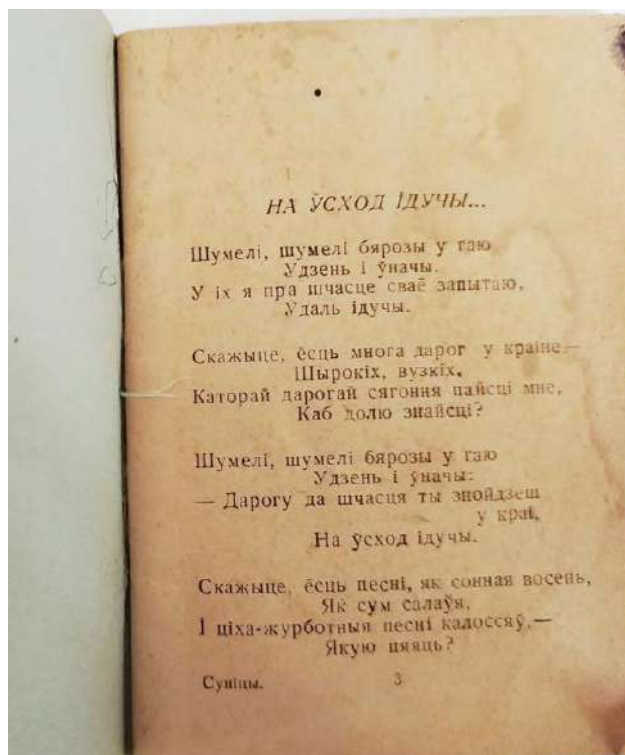 НА ЎСХОД ІДУЧЫ...
Шумелі, шумелі бярозы у гаю
Удзень і ўначы.
У іх я пра шчасце сваё запытаю,
Удаль ідучы.
Скажыце, ёсць многа дарог у краіне—
Шырокіх, вузкіх,
Каторай дарогай сягоння пайсці мне,
Каб долю знайсці?
Шумелі, шумелі бярозы у гаю
Удзень і ўначы:
— Дарогу да шчасця ты знойдзеш
у краі,
На ўсход ідучы.
Скажыце, ёсць песні, як сонная восень,
Як сум салаўя,
І ціха-журботныя песні калоссяў,—
Якую пяяць?
Суніцы.
3